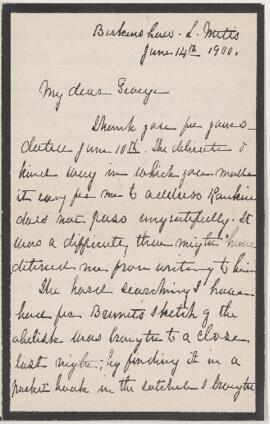 Birkenshaw. L. Metis
June 14th 1900.
My dear George
Thank you for yours
dated June 10th. The delicate &
kind way in which you made
it easy for me to address
does not pass ungratefully. It
was a difficulty that might have
deterred me from writing to him
The hard searching I have
had for Brunets sketch of the
obelisk was brought to a close
last night; by finding it in a
pocket book in the satchel I brought